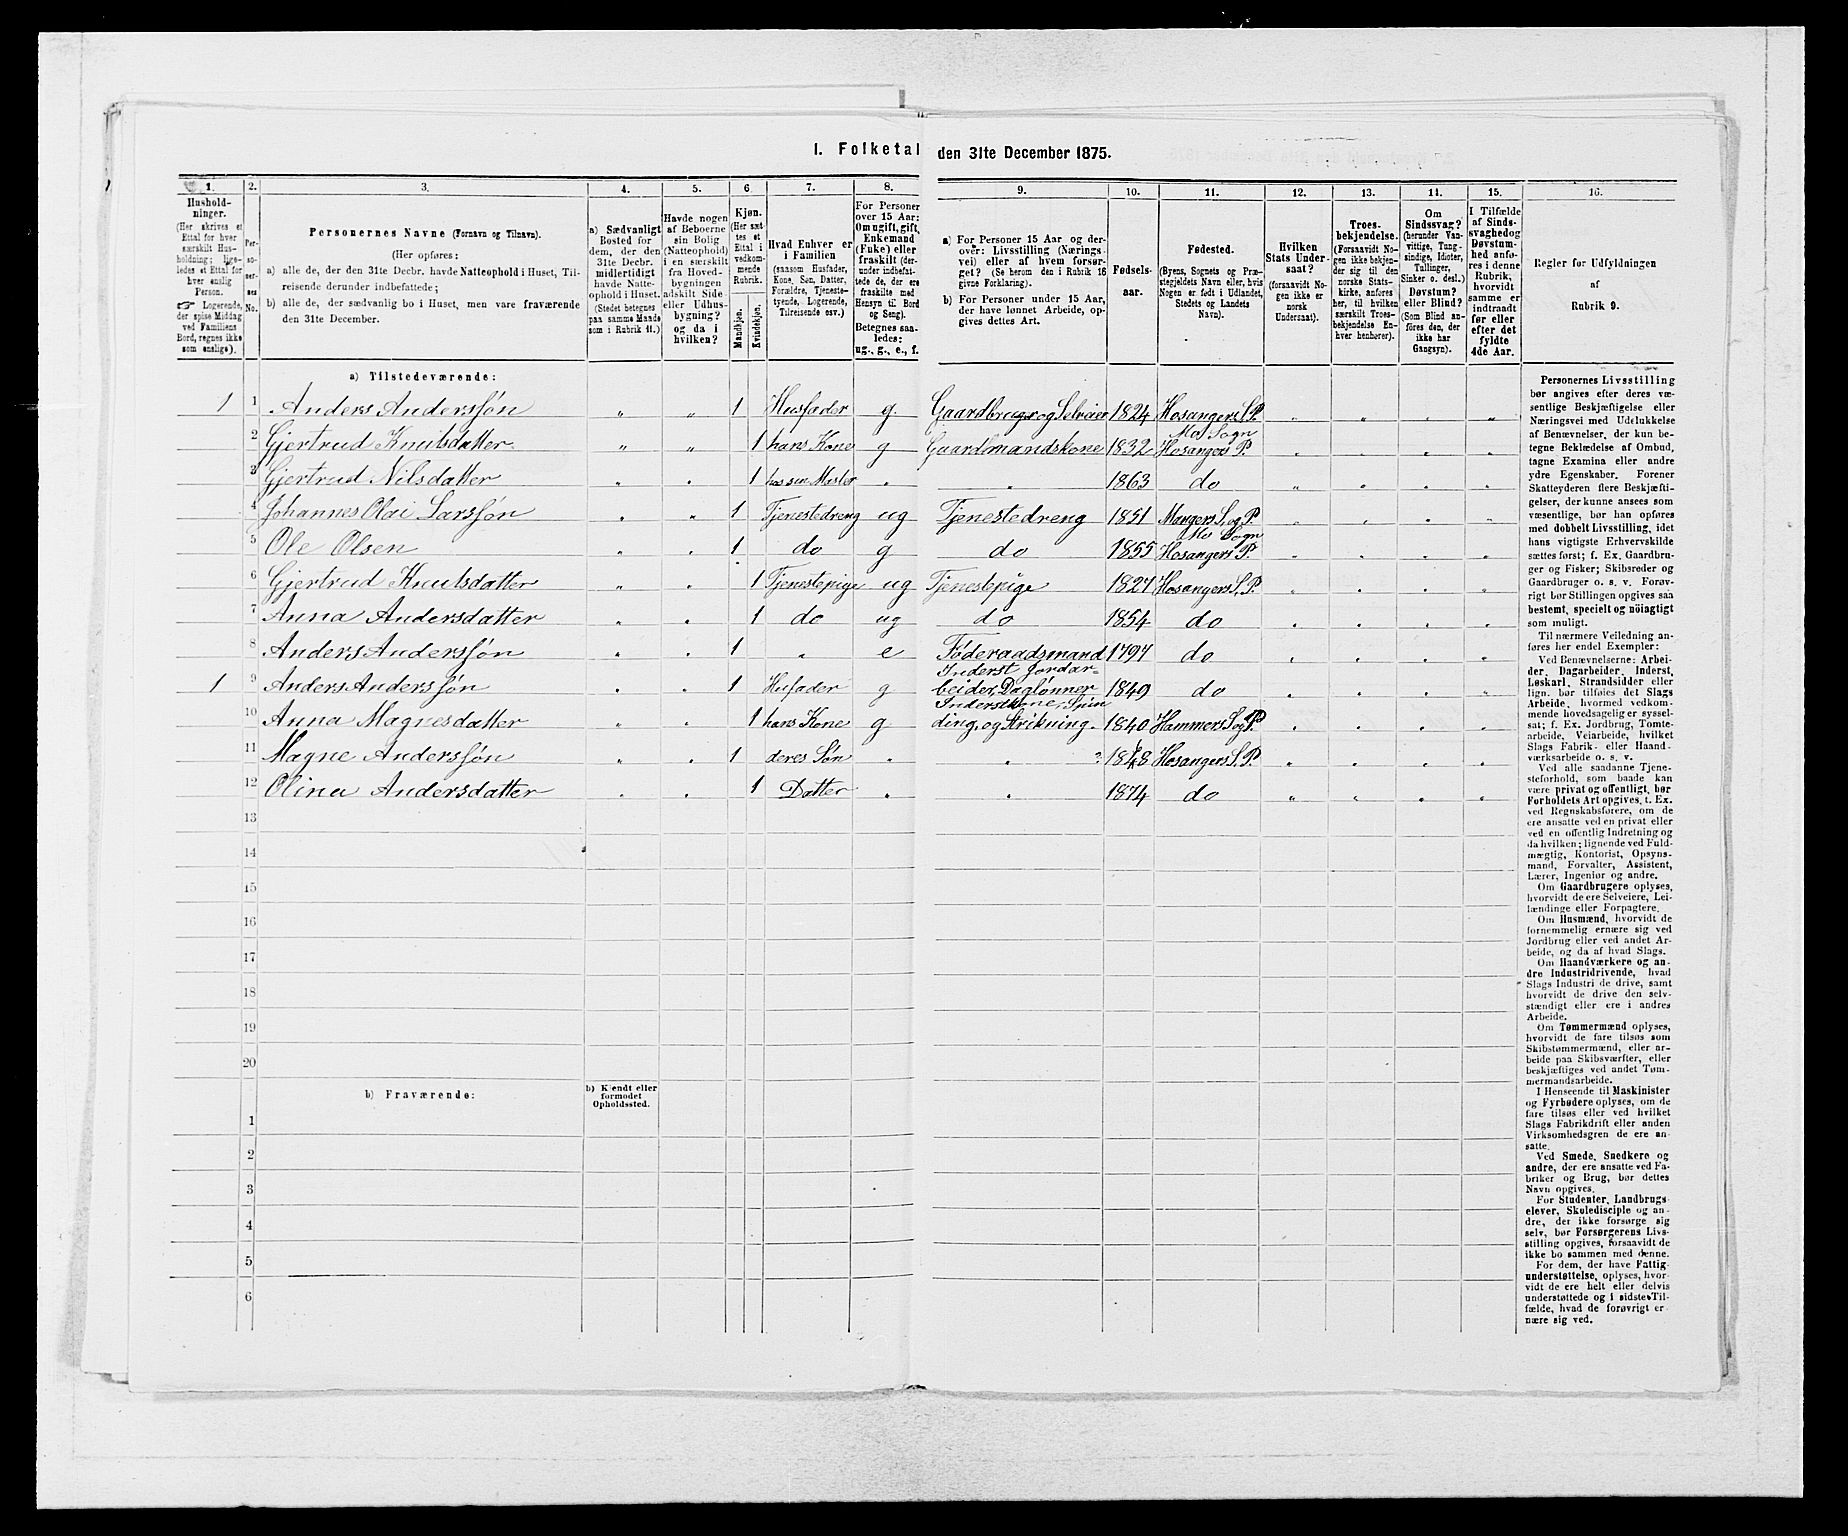 I. Folketal den 31te December 1875.
1. 2. 3. 4. 5. 6. 7. 8. 9. 10. 11. 12. 13. 14. 15. 16.
Hushold-
ninger.
(Her skrives et
Ettal for hver
særskilt Hus-
holdning; lige-
ledes et Ettal for
hver enslig
Person.
☞ Logerende,
der spise Middag
ved Familiens
Bord, regnes ikke
som enslige).
Per-
so-
ner-
nes
No.
Personernes Navne (Fornavn og Tilnavn).
(Her opføres:
a) alle de, der den 31te Decbr. havde Natteophold i Huset, Til-
reisende derunder indbefattede;
b) alle de, der sædvanlig bo i Huset, men vare fraværende
den 31te December.
a) Sædvanligt
Bosted for
dem, der den
31te Decbr.
midlertidigt
havde Natte-
ophold i Huset.
(Stedet betegnes
paa samme Maade
som i Rubrik 11.)
Havde nogen
af Beboerne
sin Bolig
(Natteophold)
i en særskilt
fra Hoved-
bygningen
adskilt Side-
eller Udhus-
bygning?
og da i
hvilken?
Kjøn.
(Her sæt-
tes et
Ettal i
vedkom-
mende
Rubrik.
Mandkjøn.
Kvindekjøn.
Hvad Enhver er
i Familien
(saasom Husfader,
Kone, Søn, Datter,
Forældre, Tjeneste-
tyende, Logerende,
Tilreisende osv.)
For Personer
over 15 Aar:
Om ugift, gift,
Enkemand
(Enke) eller
fraskilt (der-
under indbefat-
tede de, der ere
fraskilte med
Hensyn til Bord
og Seng).
Betegnes saa-
ledes:
ug., g., e., f.
a) For Personer 15 Aar og der-
over: Livsstilling (Nærings-
vei) eller af hvem forsør-
get? (Se herom den i Rubrik 16
givne Forklaring).
b) For Personer under 15 Aar,
der have lønnet Arbeide, op-
gives dettes Art.
Fødsels-
aar.
Fødested.
(Byens, Sognets og Præ-
stegjeldets Navn eller, hvis
Nogen er født i Udlandet,
Stedets og Landets
Navn).
Hvilken
Stats Under-
saat?
(forsaavidt No-
gen ikke er
norsk
Undersaat).
Troes-
bekjendelse.
(Forsaavidt No-
gen ikke bekjen-
der sig til den
norske Stats-
kirke, anføres
her, til hvilken
særskilt Troes-
bekjendelse En-
hver henhører).
Om
Sindssvag?
(herunder Van-
vittige, Tung-
sindige, Idioter,
Tullinger,
Sinker o. desl.)
Døvstum?
eller Blind?
(Som Blind an-
føres den, der
ikke har
Gangsyn).
I Tilfælde
af Sinds-
svaghed og
Døvstum-
hed anfø-
res i denne
Rubrik,
hvorvidt
samme er
indtraadt
før eller
efter det
fyldte
4de Aar.
Regler for Udfyldningen
af
Rubrik 9.
a) Tilstedeværende:
1 1 Anders Anderssøn " " 1 Husfader g. Gaardbruger og Selveier 1824 Hosangers S. P. " " " "
2 Gjertrud Knutsdatter " " 1 hans Kone g Gaardmandskone 1832 Mo Sogn Hosangers P. " " " "
3 Gjertrud Nilsdatter " " 1 " " 1863 do " " " "
4 Johannes Olai Larssøn " " 1 Tjenestedreng ug Tjenestedreng 1851 Mangers S. og P. " " " "
5 Ole Olsen " " 1 do g do 1855 Mo Sogn Hosangers P. " " " "
6 Gjertrud Knutsdatter " " 1 Tjenestepige ug Tjenestepige 1827 Hosangers S. P. " " " "
7 Anna Andersdatter " " 1 do ug do 1854 do " " " "
8 Anders Anderssøn " " 1 " e Føderaadsmand 1797 do " " " "
1 9 Anders Anderssøn " " 1 Husfader g Inderst Jordar-
beider, Daglønner 1849 do " " " "
10 Anna Magnesdatter " " 1 hans Kone g Inderstkone, Spin
ding og Strikning. 1840 Hammers S. og P. " " " "
11 Magne Anderssøn " " 1 deres Søn " " Hosangers S. P. " " " "
12 Olina Andersdatter " " 1 Datter " " 1874 do " " " "
13
14
15
16
17
18
19
20
b) Fraværende:
b) Kjendt eller
formodet
Opholdssted.
1
2
3
4
5
6
Personernes Livsstilling
bør angives efter deres væ-
sentlige Beskjæftigelse eller
Næringsvei med Udelukkelse
af Benævnelser, der kun be-
tegne Beklædelse af Ombud,
tagne Examina eller andre
ydre Egenskaber. Forener
Skatteyderen flere Beskjæfti-
gelser, der kunne ansees som
væsentlige, bør han opføres
med dobbelt Livsstilling, idet
hans vigtigste Erhvervskilde
sættes først; f. Ex. Gaardbru-
ger og Fisker; Skibsreder og
Gaardbruger o. s. v. Forøv-
rigt bør Stillingen opgives saa
bestemt, specielt og nöiagtigt
som muligt.
Til nærmere Veiledning an-
føres her endel Exempler:
Ved Benævnelserne: Arbei-
der, Dagarbeider, Inderst,
Løskarl, Strandsidder eller
lign. bør tilføies det Slags
Arbeide, hvormed vedkom-
mende hovedsagelig er syssel-
sat; f. Ex. Jordbrug, Tomte-
arbeide, Veiarbeide, hvilket
Slags Fabrik- eller Haand-
værksarbeide o. s. v.
Ved alle saadanne Tjene-
steforhold, som baade kan
være privat og offentligt, bør
Forholdets Art opgives, t. Ex.
ved Regnskabsførere, om de
ere ansatte ved en privat eller
ved en offentlig Indretning og
da hvilken; lignende ved Fuld-
mægtig, Kontorist, Opsyns-
mand, Forvalter, Assistent,
Lærer, Ingeniør og andre.
Om Gaardbrugere oplyses,
hvorvidt de ere Selveiere, Lei-
lændinge eller Forpagtere.
Om Husmænd, hvorvidt de
fornemmelig ernære sig ved
Jordbrug eller ved andet Ar-
beide, og da af hvad Slags.
Om Haandværkere og an-
dre Industridrivende, hvad
Slags Industri de drive, samt
hvorvidt de drive den selv-
stændigt eller ere i andres
Arbeide.
Om Tømmermænd oplyses,
hvorvidt de fare tilsøs som
Skibstømmermænd, eller ar-
beide paa Skibsværfter, eller
beskjæftiges ved andet Tøm-
mermandsarbeide.
I Henseende til Maskinister
og Fyrbødere oplyses, om de
fare tilsøs eller ved hvilket
Slags Fabrikdrift eller anden
Virksomhedsgren de ere an-
satte.
Ved Smede, Snedkere og
andre, der ere ansatte ved Fa-
briker og Brug, bør dettes
Navn opgives.
For Studenter, Landbrugs-
elever, Skoledisciple og an-
dre, der ikke forsørge sig
selv, bør Forsørgerens Livs-
stilling opgives, forsaavidt de
ikke bo sammen med denne.
For dem, der have Fattig-
understøttelse, oplyses, hvor-
vidt de ere helt eller delvis
understøttede og i sidste Til-
fælde, hvad de forøvrigt er-
nære sig ved.